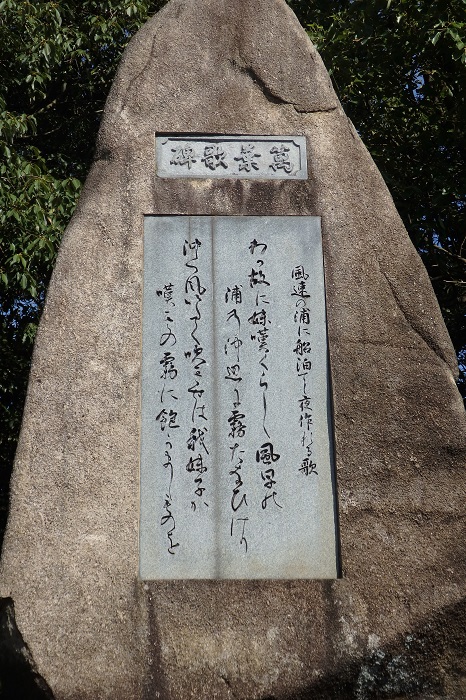 萬葉歌碑
風速の浦に船泊てし夜作れる歌
わか故に妹嘆くらし風早の
浦の沖辺に霧たなひけり
沖つ風いたく吹きせは我妹子か
嘆きの霧に飽かましものを